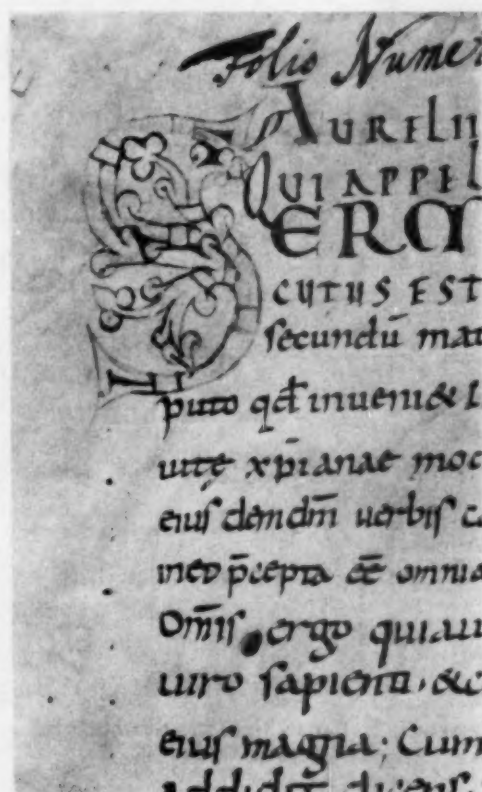 Folio Numer
AURELII
QUI APPEL
SERM
CUTUS EST
secundū mat
puto qđ inueni& l
uitę xp̄ianae moc
eiusdemdn̄i uerbis c
ineo p̄cepta eē omnia
Om̄is ergo qui au
uiro sapienti, &c
eius magna; Cum
addidit dicens